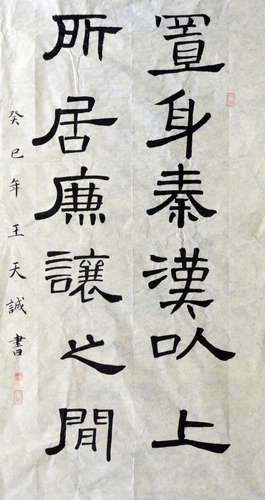 置身秦漢以上
所居廉讓之間
癸巳年王天誠書